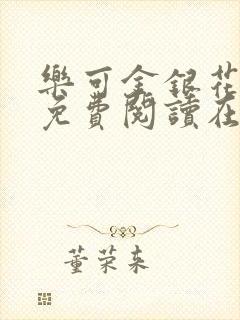 樂可金銀花
免費閱讀在
董荣来